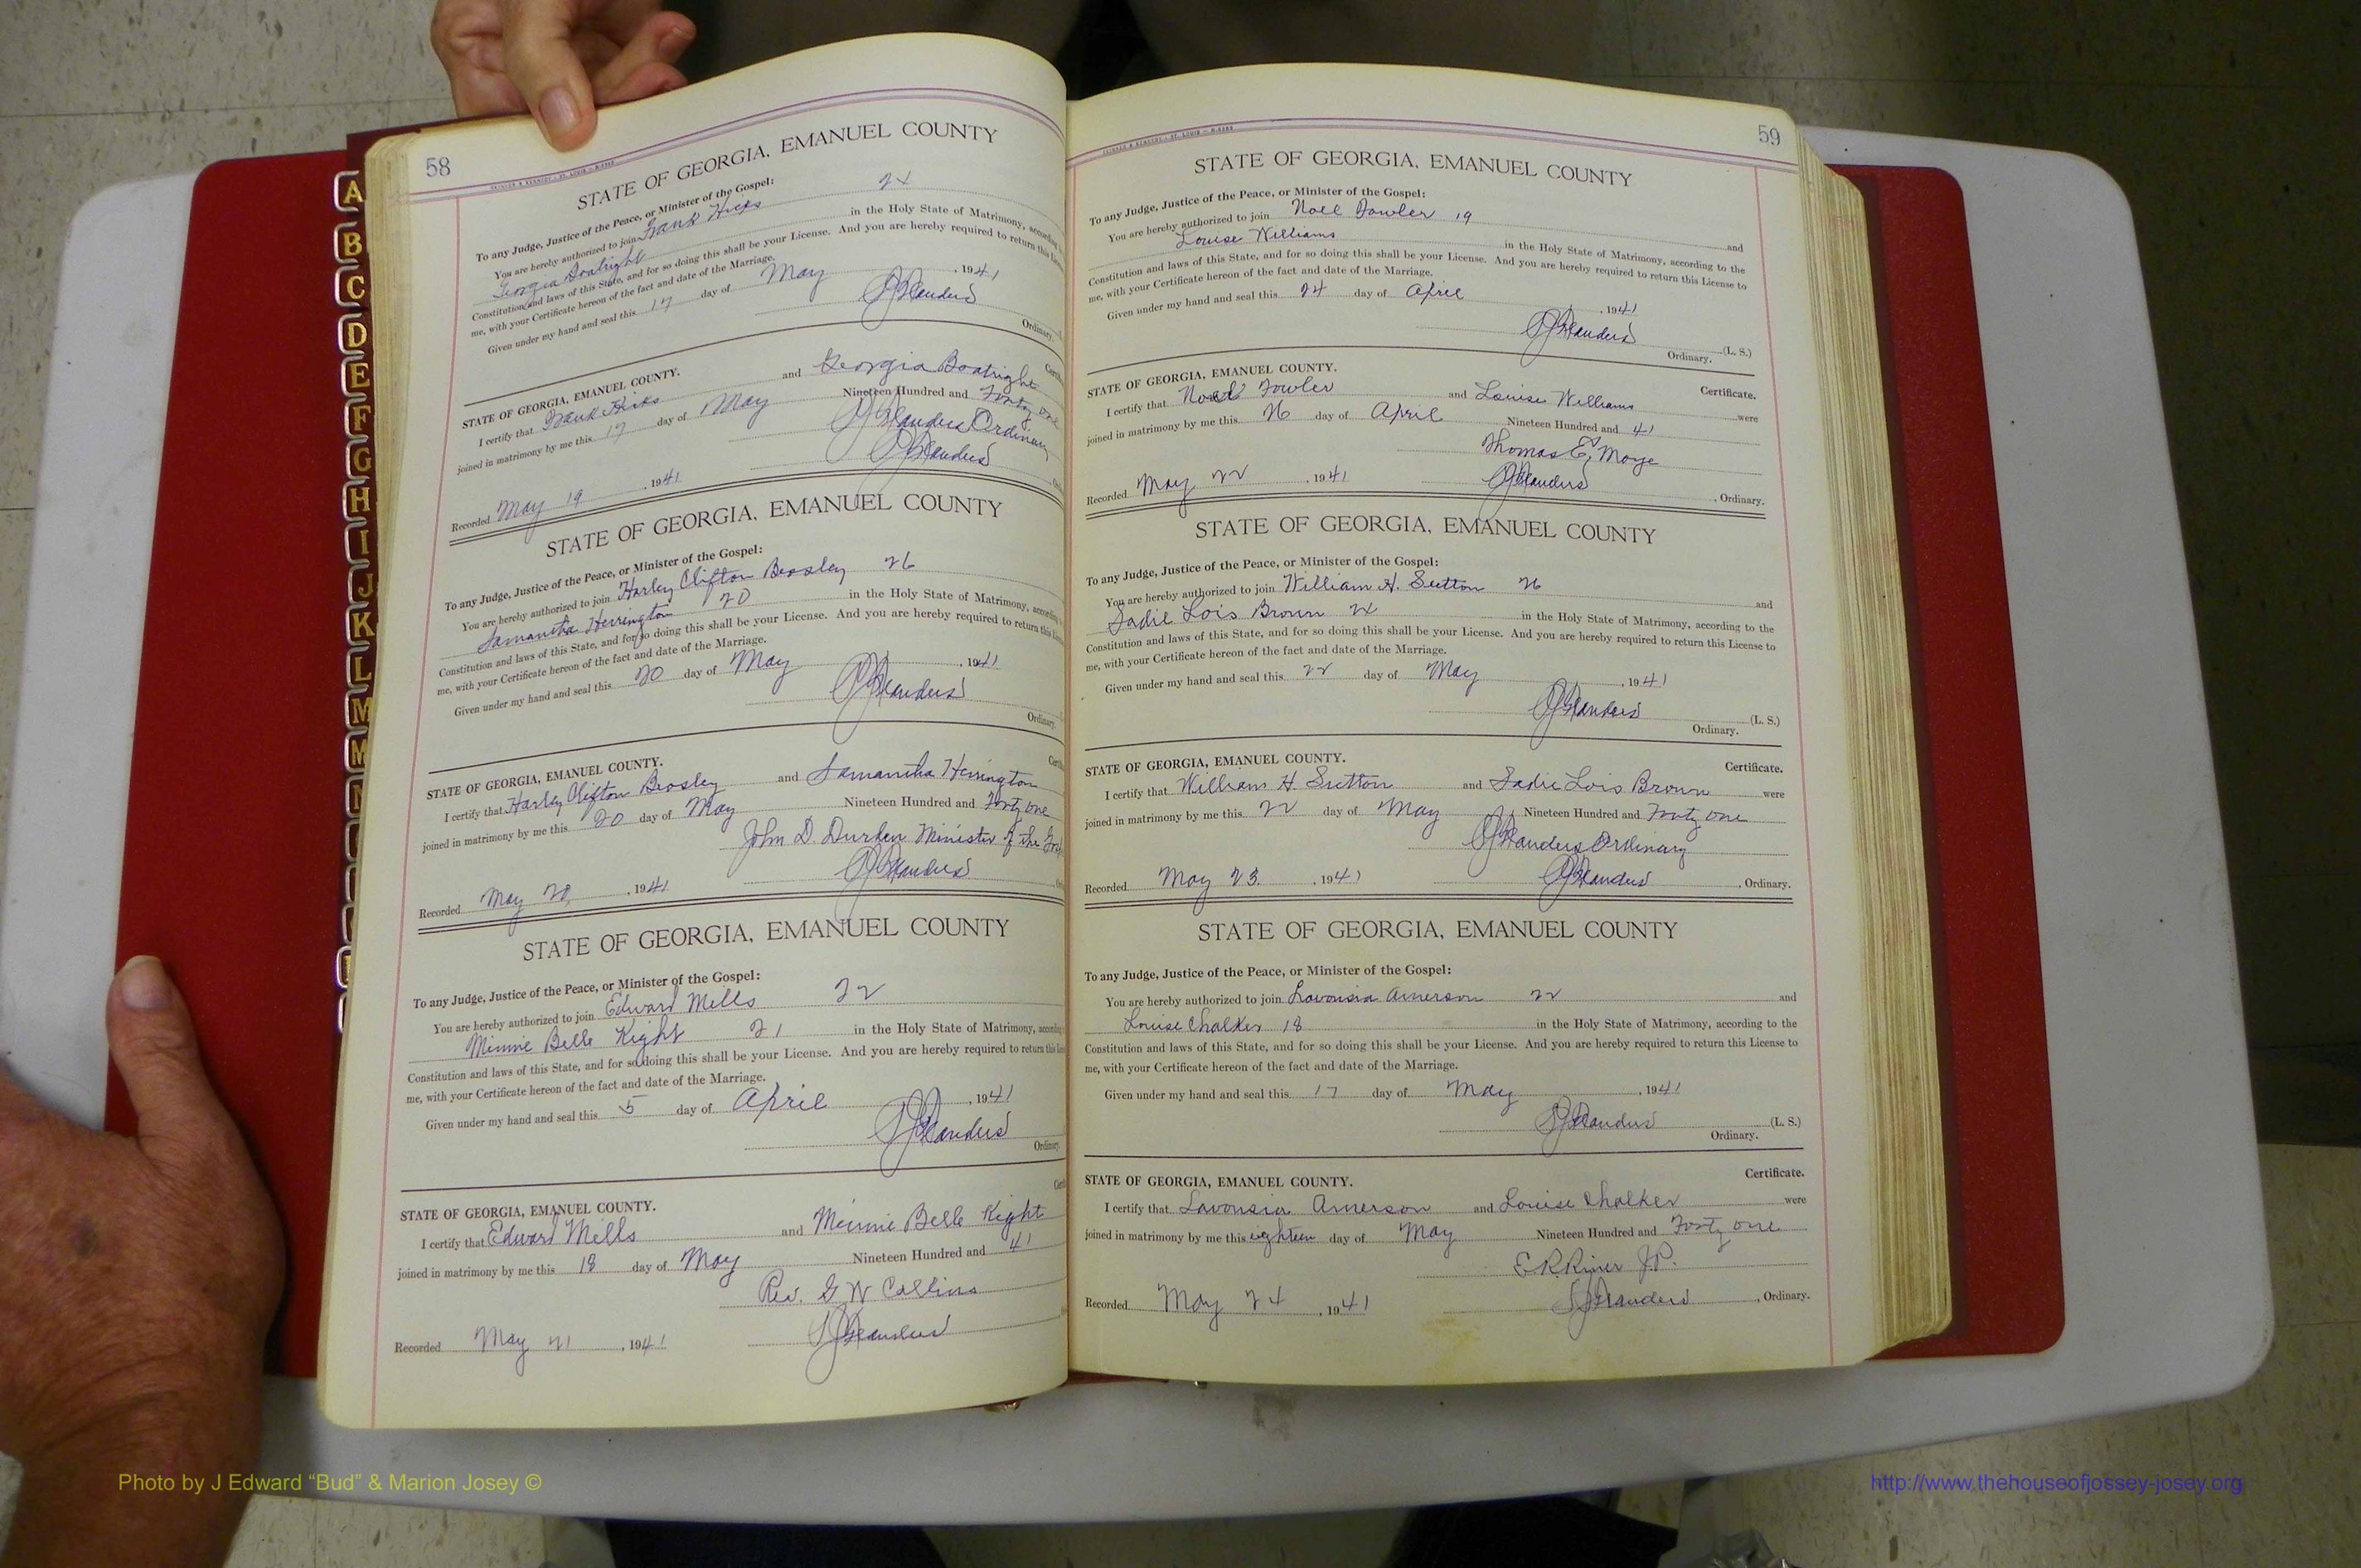 58
STATE OF GEORGIA, EMANUEL COUNTY
To any Judge, Justice of the Peace, or Minister of the Gospel:
You are hereby authorized to join Frank Hicks 24
Georgia Boatright in the Holy State of Matrimony,
Constitution and laws of this State, and for so doing this shall be your License. And you are hereby required to return this
me, with your Certificate hereon of the fact and date of the Marriage.
Given under my hand and seal this 17 day of May, 1941
Ordinary.
STATE OF GEORGIA, EMANUEL COUNTY.
I certify that Frank Hicks and Georgia Boatright
joined in matrimony by me this 17 day of May Nineteen Hundred and Forty one
Flanders Ordinary
Flanders
Recorded May 19, 1941
STATE OF GEORGIA, EMANUEL COUNTY
To any Judge, Justice of the Peace, or Minister of the Gospel:
You are hereby authorized to join Harley Clifton Beasley 26
Samantha Herrington 20 in the Holy State of Matrimony,
Constitution and laws of this State, and for so doing this shall be your License. And you are hereby required to return this
me, with your Certificate hereon of the fact and date of the Marriage.
Given under my hand and seal this 20 day of May, 1941
Flanders
Ordinary.
STATE OF GEORGIA, EMANUEL COUNTY.
I certify that Harley Clifton Beasley and Samantha Herrington
joined in matrimony by me this 20 day of May Nineteen Hundred and Forty one
John D. Durden Minister of the
Flanders
Recorded May 20, 1941
STATE OF GEORGIA, EMANUEL COUNTY
To any Judge, Justice of the Peace, or Minister of the Gospel:
You are hereby authorized to join Edward Mills 22
Minnie Belle Kight 21 in the Holy State of Matrimony,
Constitution and laws of this State, and for so doing this shall be your License. And you are hereby required to return this
me, with your Certificate hereon of the fact and date of the Marriage.
Given under my hand and seal this 5 day of April, 1941
Flanders
Ordinary.
STATE OF GEORGIA, EMANUEL COUNTY.
I certify that Edward Mills and Minnie Belle Kight
joined in matrimony by me this 18 day of May Nineteen Hundred and 41
Rev. G W Collins
Flanders
Recorded May 21, 1941
A
B
C
D
E
F
G
H
I
J
K
L
M
59
STATE OF GEORGIA, EMANUEL COUNTY
To any Judge, Justice of the Peace, or Minister of the Gospel:
You are hereby authorized to join Noel Fowler 19 and
Louise Williams in the Holy State of Matrimony, according to the
Constitution and laws of this State, and for so doing this shall be your License. And you are hereby required to return this License to
me, with your Certificate hereon of the fact and date of the Marriage.
Given under my hand and seal this 24 day of April, 1941
Flanders (L. S.)
Ordinary.
STATE OF GEORGIA, EMANUEL COUNTY. Certificate.
I certify that Noel Fowler and Louise Williams were
joined in matrimony by me this 26 day of April Nineteen Hundred and 41
Thomas E. Moye
Recorded May 22, 1941 Flanders, Ordinary.
STATE OF GEORGIA, EMANUEL COUNTY
To any Judge, Justice of the Peace, or Minister of the Gospel:
You are hereby authorized to join William H. Sutton 26 and
Sadie Lois Brown in the Holy State of Matrimony, according to the
Constitution and laws of this State, and for so doing this shall be your License. And you are hereby required to return this License to
me, with your Certificate hereon of the fact and date of the Marriage.
Given under my hand and seal this 22 day of May, 1941
Flanders (L. S.)
Ordinary.
STATE OF GEORGIA, EMANUEL COUNTY. Certificate.
I certify that William H. Sutton and Sadie Lois Brown were
joined in matrimony by me this 22 day of May Nineteen Hundred and Forty one
Flanders Ordinary
Recorded May 23, 1941 Flanders, Ordinary.
STATE OF GEORGIA, EMANUEL COUNTY
To any Judge, Justice of the Peace, or Minister of the Gospel:
You are hereby authorized to join Lavonsia Amerson 22 and
Louise Chalker 18 in the Holy State of Matrimony, according to the
Constitution and laws of this State, and for so doing this shall be your License. And you are hereby required to return this License to
me, with your Certificate hereon of the fact and date of the Marriage.
Given under my hand and seal this 17 day of May, 1941
Flanders (L. S.)
Ordinary.
STATE OF GEORGIA, EMANUEL COUNTY. Certificate.
I certify that Lavonsia Amerson and Louise Chalker were
joined in matrimony by me this eighteen day of May Nineteen Hundred and Forty one
E R Riner J.P.
Recorded May 24, 1941 Flanders, Ordinary.
Photo by J Edward “Bud” & Marion Josey ©
http://www.thehouseofjossey-josey.org